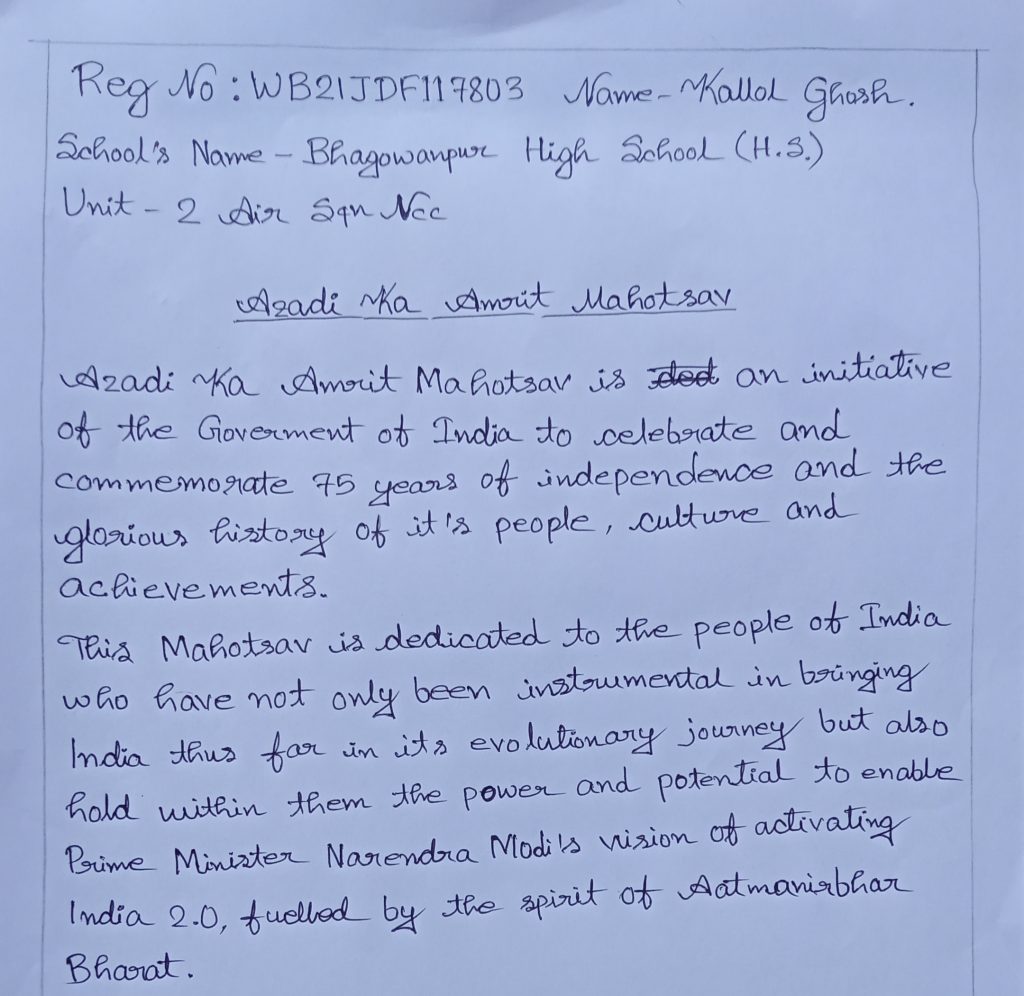 Reg No : WB21JDF117803 Name - Kallol Ghosh.
School's Name - Bhagowanpur High School (H.S.)
Unit - 2 Air Sqn Ncc
Azadi Ka Amrit Mahotsav
Azadi Ka Amrit Mahotsav is ded an initiative
of the Goverment of India to celebrate and
commemorate 75 years of independence and the
glorious history of it's people, culture and
achievements.
This Mahotsav is dedicated to the people of India
who have not only been instrumental in bringing
India thus far in its evolutionary journey but also
hold within them the power and potential to enable
Prime Minister Narendra Modi's vision of activating
India 2.0, fuelled by the spirit of Aatmanirbhar
Bharat.